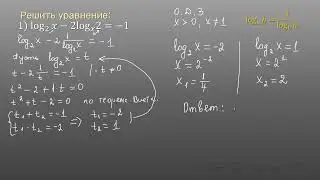 Решить уравнение:
1) log₂ x − 2logₓ 2 = −1
log₂ x − 2 · 1/log₂ x = −1
Пусть log₂ x = t
t − 2 · 1/t = −1 | · t, t ≠ 0
t² − 2 + 1 · t = 0
t² + t − 2 = 0 по теореме Виета:
{ t₁ + t₂ = −1
t₁ · t₂ = −2 => t₁ = −2
t₂ = 1
О.Д.З
x > 0, x ≠ 1
log₂ x = −2
x = 2⁻²
x₁ = 1/4
log₂ x = 1
x = 2¹
x₂ = 2
Ответ: